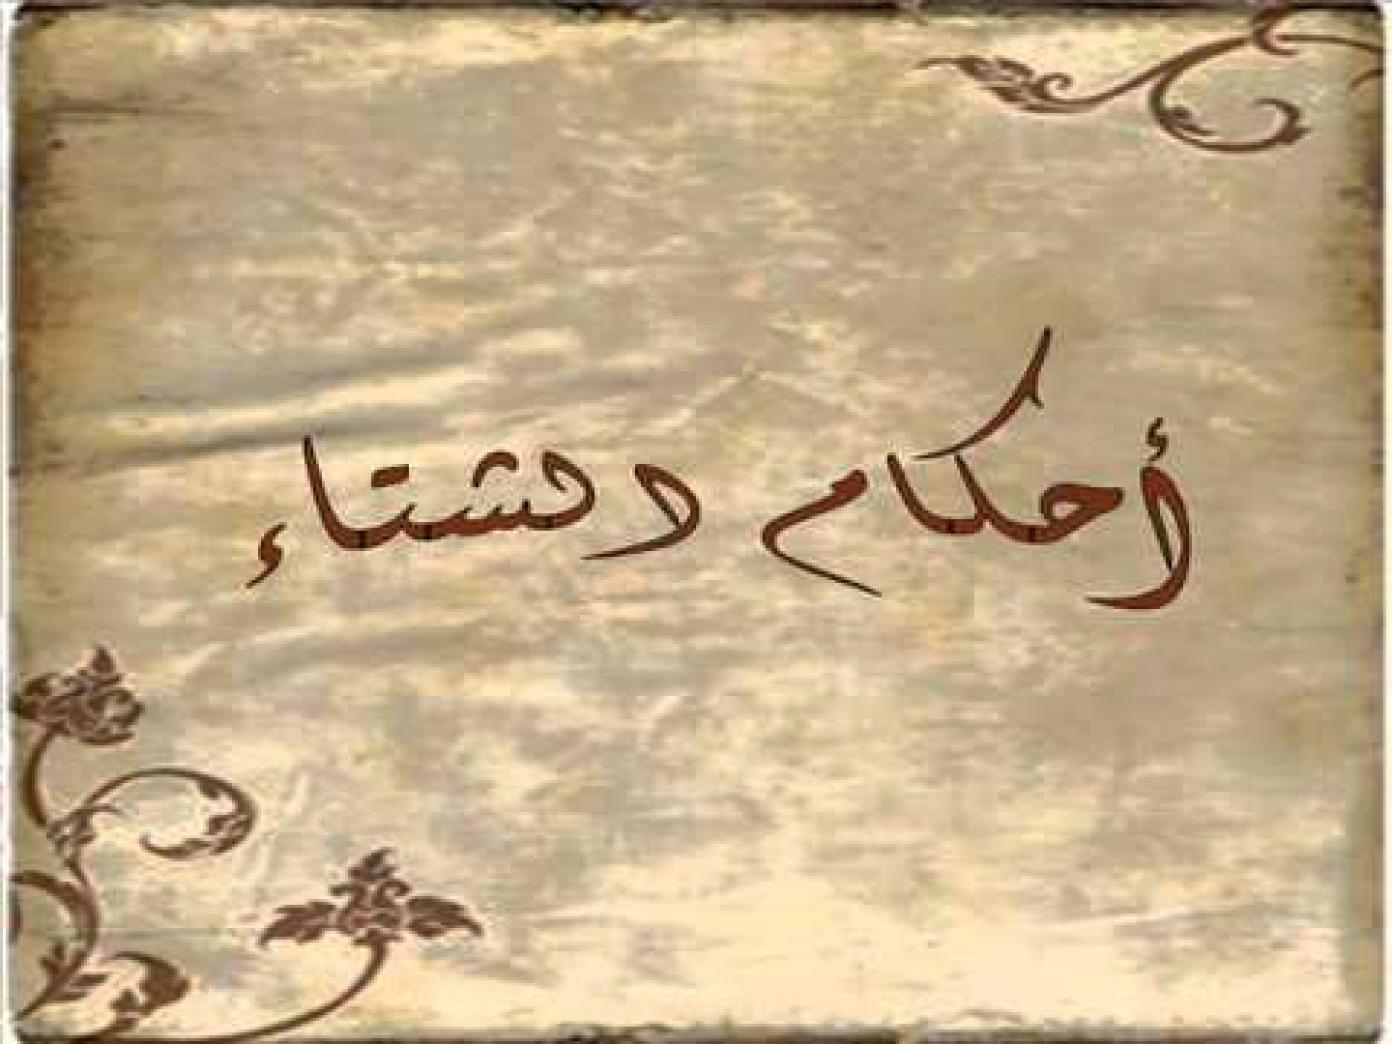 أحكام الشتاء